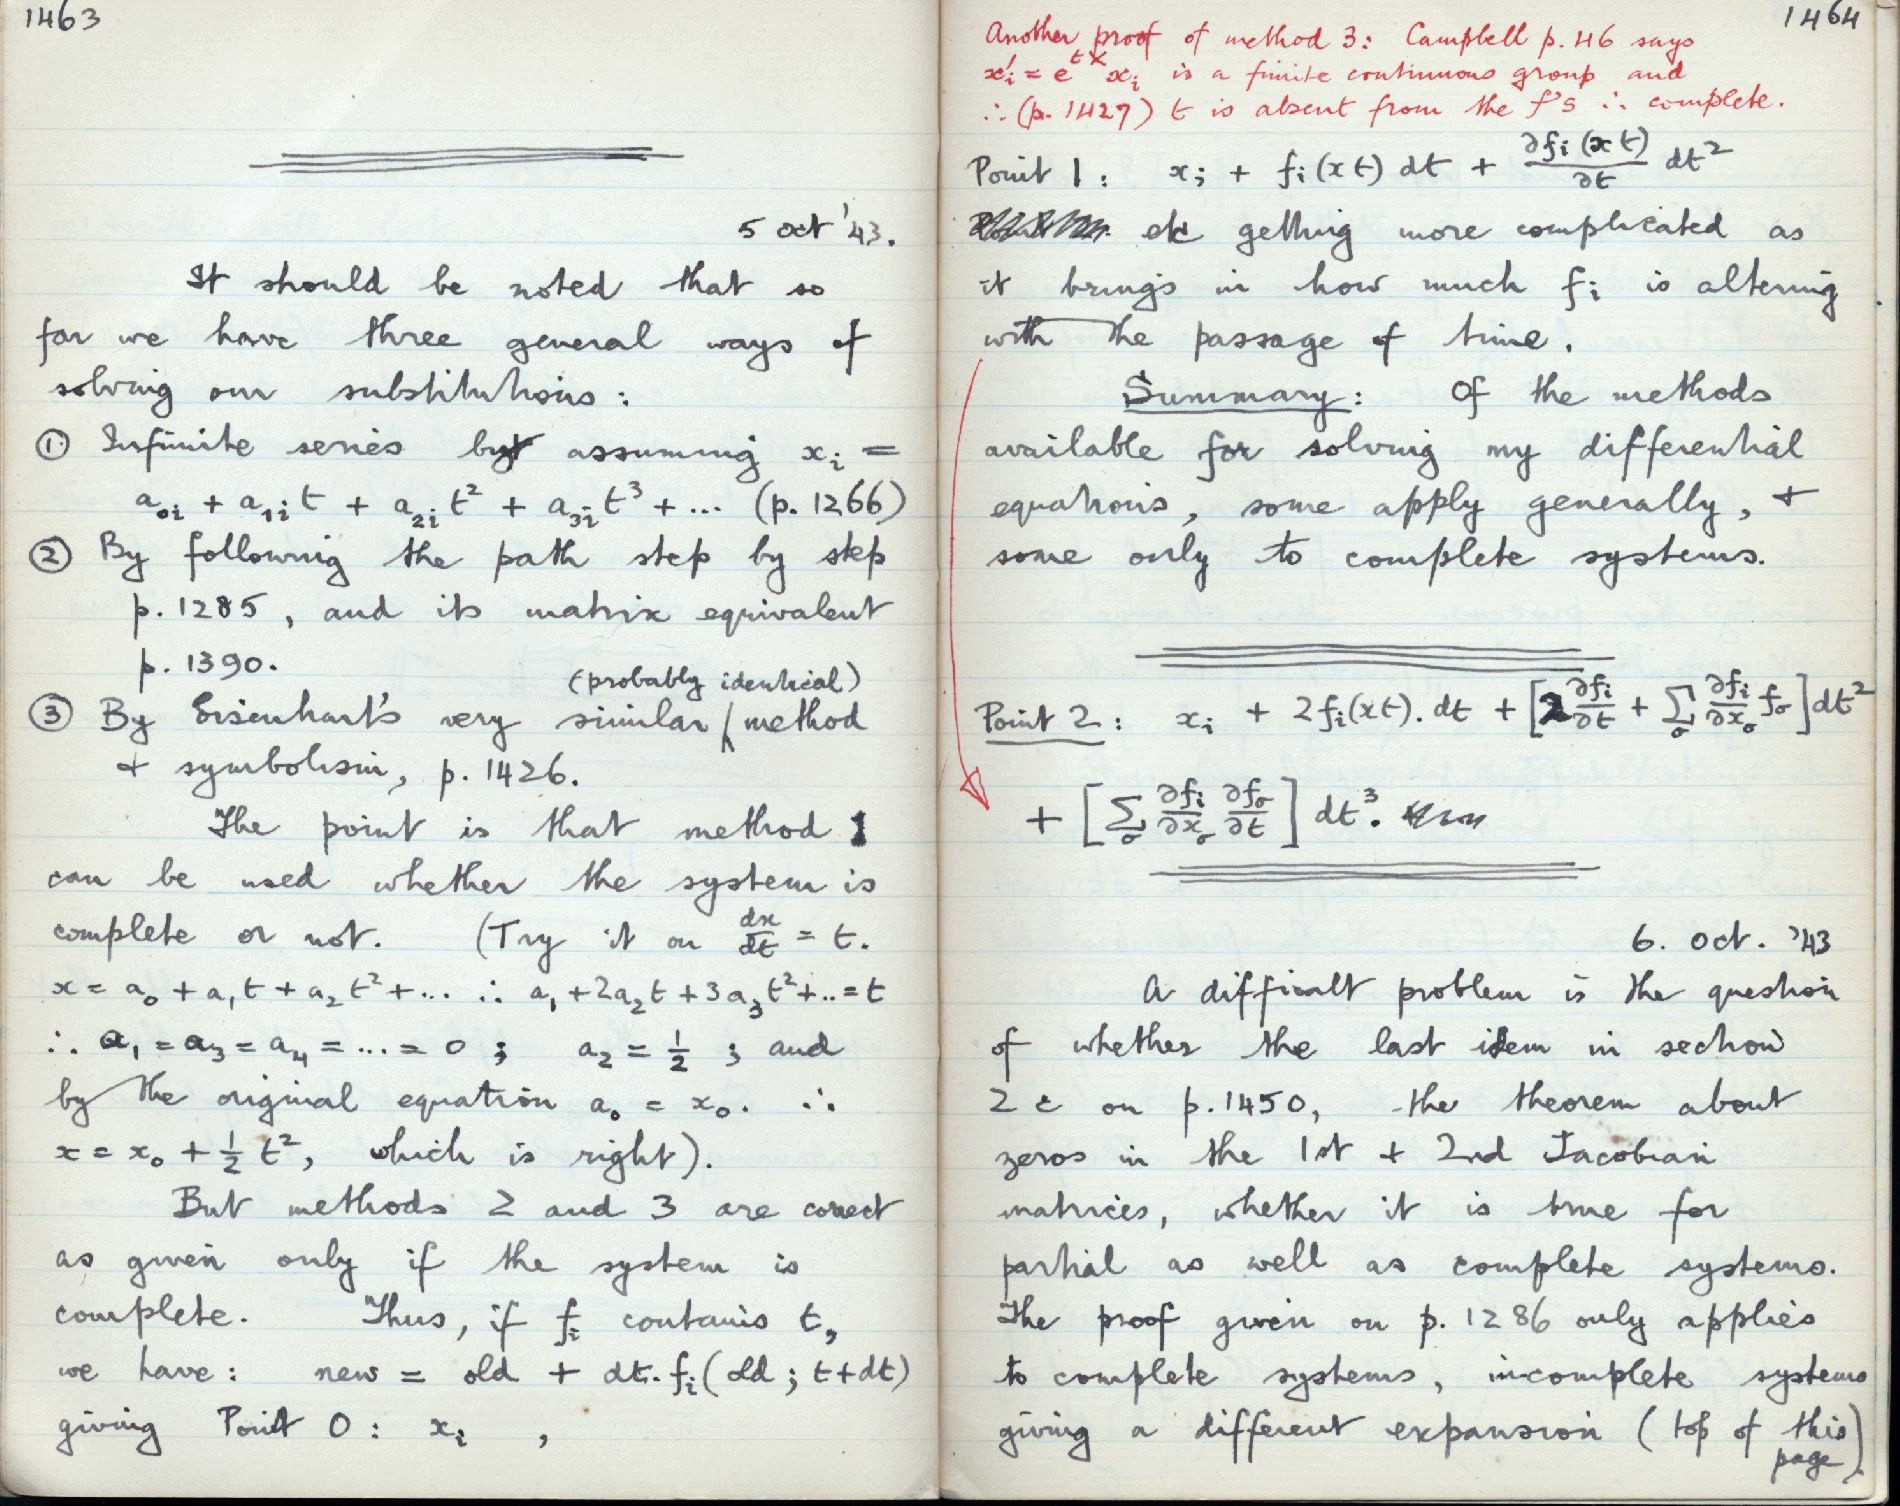 1463
5 Oct '43.
It should be noted that so
far we have three general ways of
solving our substitutions :
① Infinite series by assuming xᵢ =
a₀ᵢ + a₁ᵢt + a₂ᵢt² + a₃ᵢt³ + ... (p. 1266)
② By following the path step by step
p. 1285, and its matrix equivalent
p. 1390.
(probably identical)
③ By Eisenhart's very similar / method
+ symbolism, p. 1426.
The point is that method 1
can be used whether the system is
complete or not. (Try it on dx/dt = t.
x = a₀ + a₁t + a₂t² + ... ∴ a₁ + 2a₂t + 3a₃t² + .. = t
∴ a₁ = a₃ = a₄ = ... = 0 ; a₂ = ½ ; and
by the original equation a₀ = x₀. ∴
x = x₀ + ½ t², which is right).
But methods 2 and 3 are correct
as given only if the system is
complete. Thus, if fᵢ contains t,
we have : new = old + dt. fᵢ(old ; t+dt)
giving Point 0 : xᵢ ,
1464
Another proof of method 3: Campbell p. 46 says
x'ᵢ = e^{tX} xᵢ is a finite continuous group and
∴ (p. 1427) t is absent from the f's ∴ complete.
Point 1 : xᵢ + fᵢ(xt) dt + ∂fᵢ(xt)/∂t dt²
etc getting more complicated as
it brings in how much fᵢ is altering
with the passage of time.
Summary : Of the methods
available for solving my differential
equations, some apply generally, +
some only to complete systems.
Point 2 : xᵢ + 2fᵢ(xt). dt + [2 ∂fᵢ/∂t + Σ_σ ∂fᵢ/∂x_σ f_σ] dt²
+ [Σ_σ ∂fᵢ/∂x_σ ∂f_σ/∂t] dt³.
6. Oct. '43
A difficult problem is the question
of whether the last item in section
2c on p. 1450, the theorem about
zeros in the 1st + 2nd Jacobian
matrices, whether it is true for
partial as well as complete systems.
The proof given on p. 1286 only applies
to complete systems, incomplete systems
giving a different expansion (top of this
page)